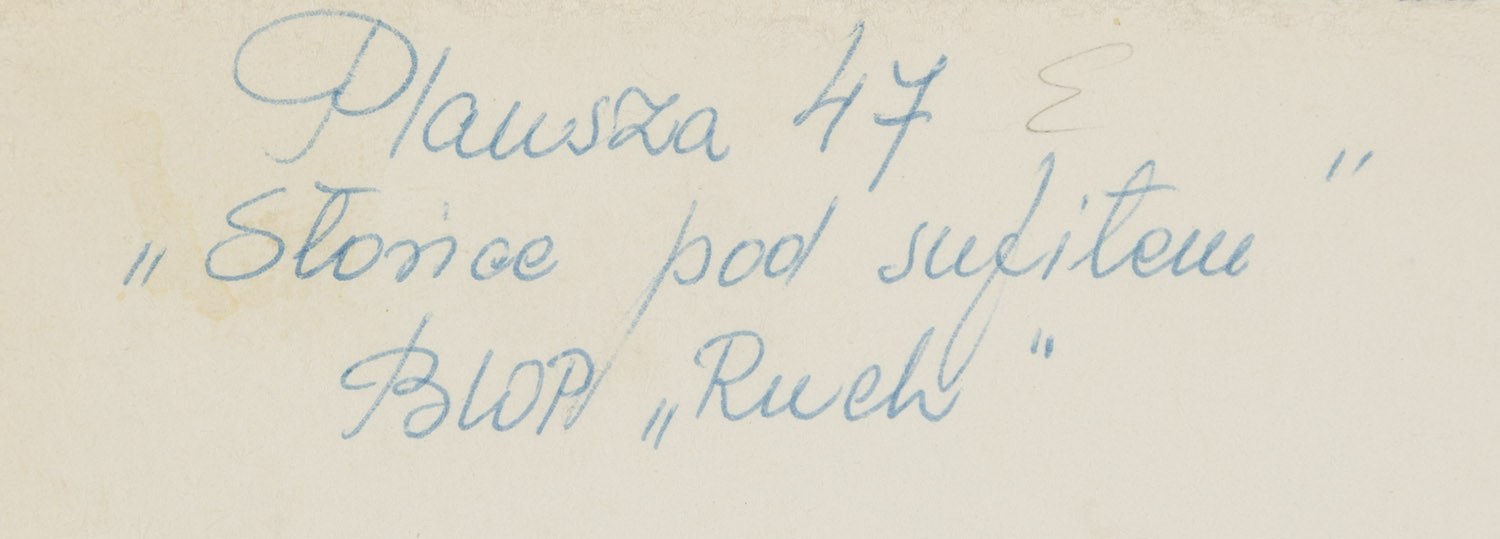 Plansza 47 E
„Słońce pod sufitem"
BWP „Ruch"